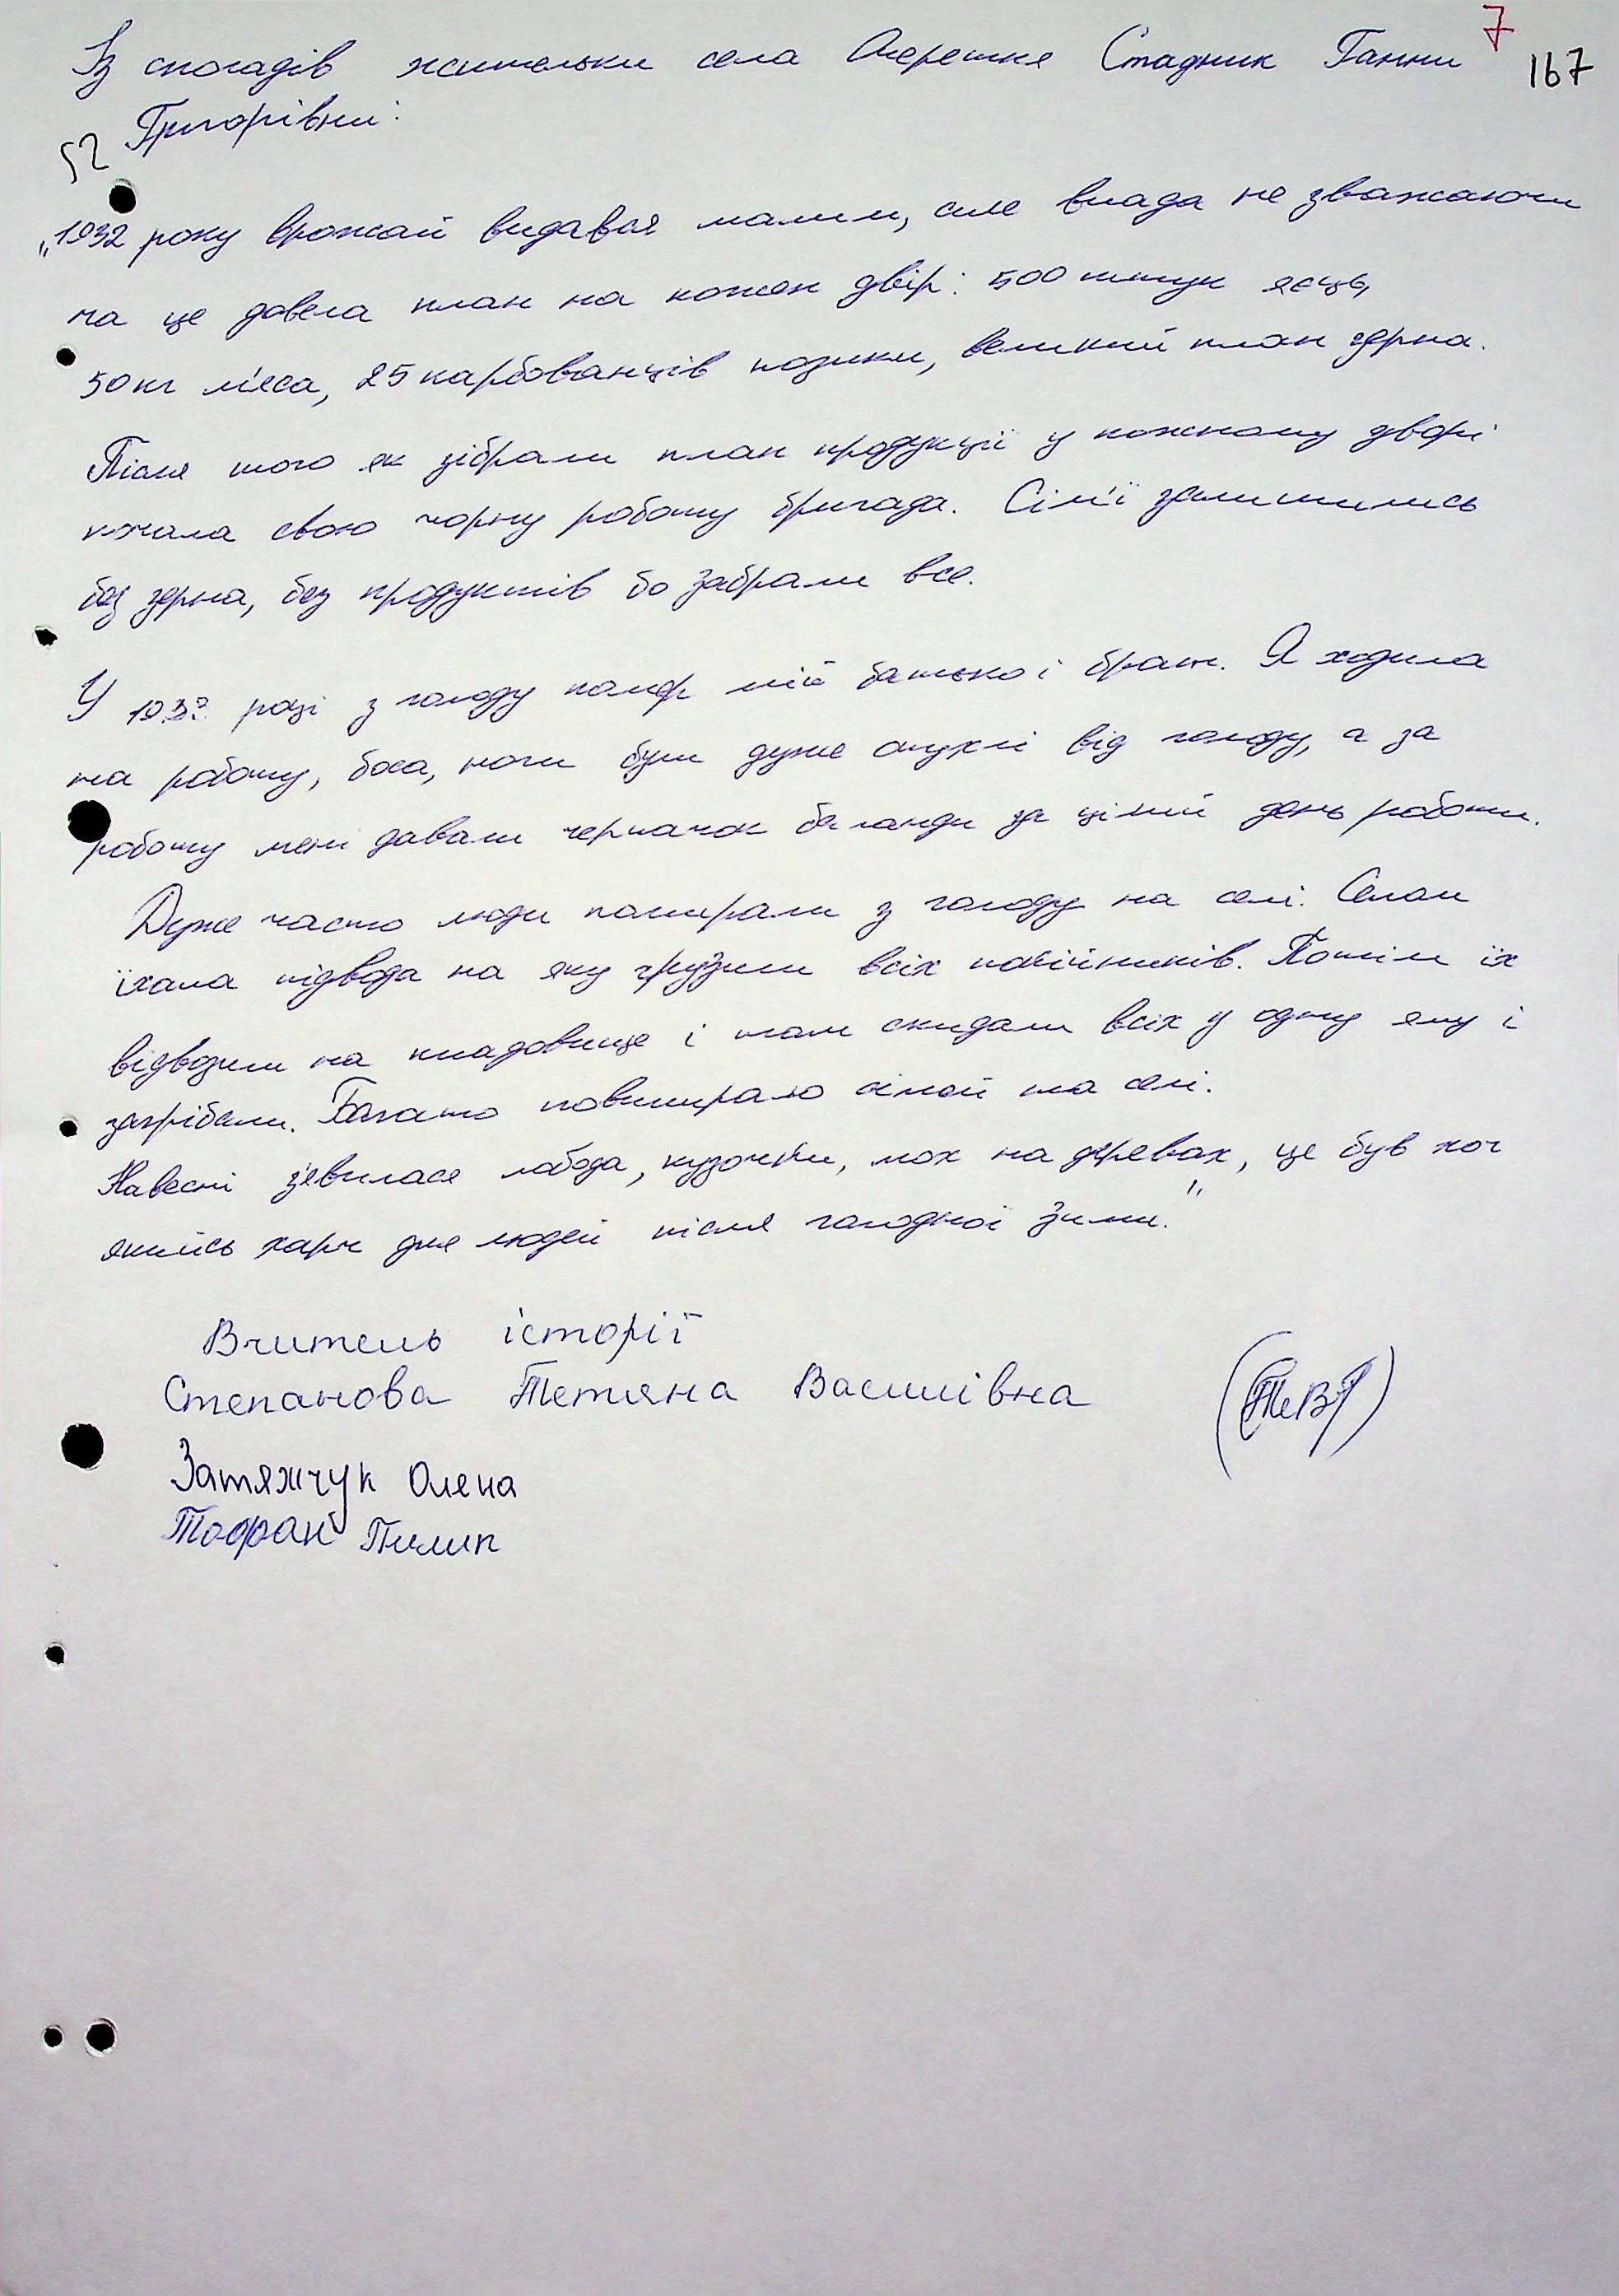 7
167
Із спогадів жительки села Очеретня Стадник Ганни
Григорівни:
52
"1932 року врожай видався малим, але влада не зважаючи
на це довела план на кожен двір: 500 штук яєць,
50 кг м'яса, 25 карбованців позики, великий план зерна.
Після того як зібрали план продукції у кожному дворі
почала свою чорну роботу бригада. Сім'ї залишились
без зерна, без продуктів бо забрали все.
У році з голоду помер мій батько і брат. Я ходила
на роботу, боса, ноги були дуже опухлі від голоду, а за
роботу мені давали черпачок баланди за цілий день роботи.
Дуже часто люди помирали з голоду на селі. Селом
їхала підвода на яку грузили всіх покійників. Потім їх
відвозили на кладовище і там скидали всіх у одну яму і
загрібали. Багато повмирало сімей на селі.
Навесні з'явилася лобода, кузочки, мох на деревах, це був хоч
якийсь харч для людей після голодної зими."
Вчитель історії
Степанова Тетяна Василівна
Затяжчук Олена
Тофран Пилип